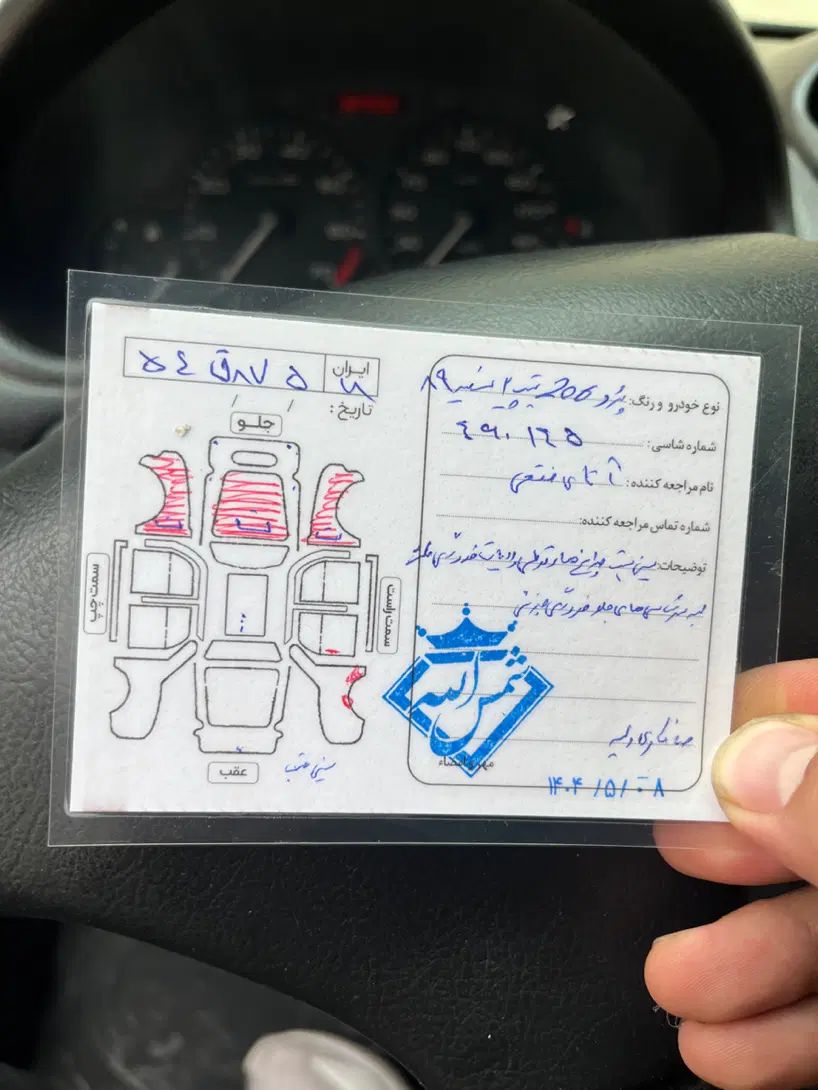 ایران
۷۸
۵۴ ق ۸۷۵
تاریخ: / /
جلو
ت
ت
ت
سمت چپ
سمت راست
عقب
سینی عقب
نوع خودرو و رنگ: پژو 206 تیپ ۲ سفید ۸۹
شماره شاسی: ۴۹۰۱۲۵
نام مراجعه کننده: آقای
شماره تماس مراجعه کننده:
توضیحات: سینی پشت چراغ‌ها و
های جلو خوردگی جزئی
صافکاری
شمس الله
مهر و امضاء
۱۴۰۴/۵/۰۸